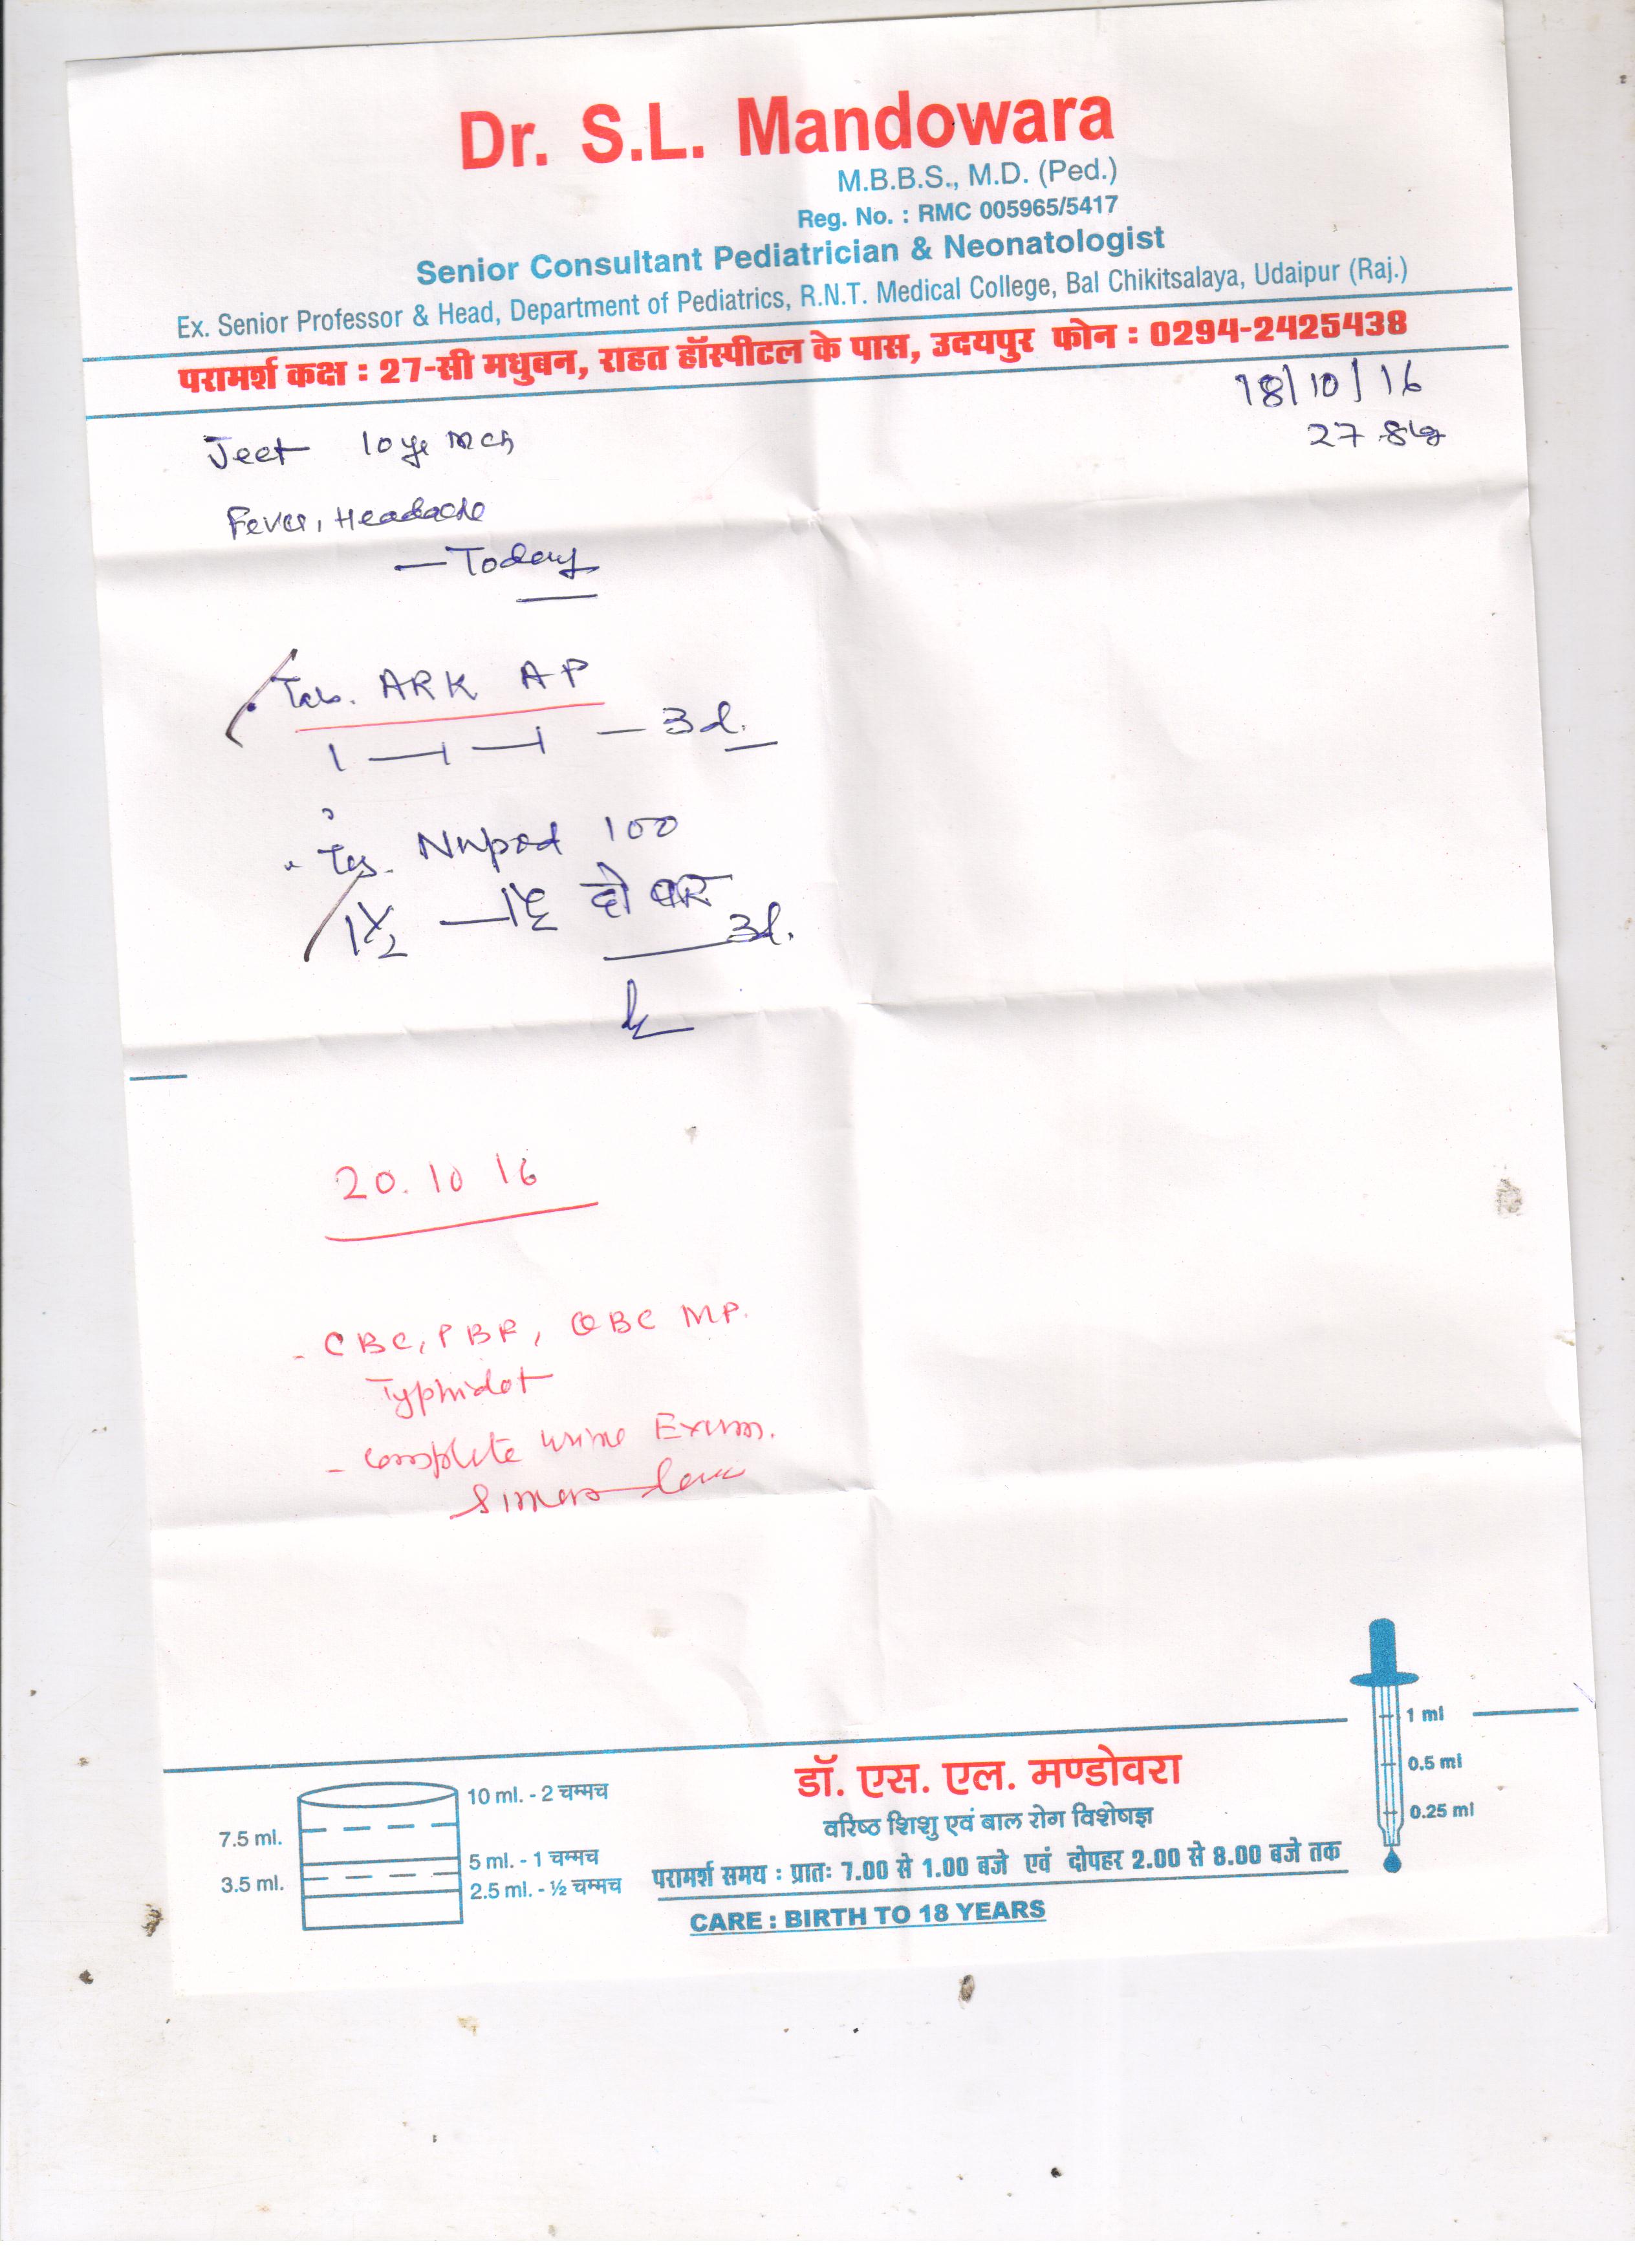 Dr. S.L. Mandowara
M.B.B.S., M.D. (Ped.)
Reg. No. : RMC 005965/5417
Senior Consultant Pediatrician & Neonatologist
Ex. Senior Professor & Head, Department of Pediatrics, R.N.T. Medical College, Bal Chikitsalaya, Udaipur (Raj.)
परामर्श कक्ष : 27-सी मधुबन, राहत हॉस्पीटल के पास, उदयपुर फोन : 0294-2425438
18/10/16
27.8kg
Jeet 10 yr mch
Fever, Headache
— Today
Tab. ARK AP
1 — 1 — 1 — 3d.
Tab. Nupod 100
1½ — 1½ दो बार 3d.
20.10 16
- CBC, PBF, QBC MP.
Typhidot
- complete urine Exam.
10 ml. - 2 चम्मच
7.5 ml.
5 ml. - 1 चम्मच
3.5 ml.
2.5 ml. - ½ चम्मच
डॉ. एस. एल. मण्डोवरा
वरिष्ठ शिशु एवं बाल रोग विशेषज्ञ
परामर्श समय : प्रातः 7.00 से 1.00 बजे एवं दोपहर 2.00 से 8.00 बजे तक
CARE : BIRTH TO 18 YEARS
1 ml
0.5 ml
0.25 ml